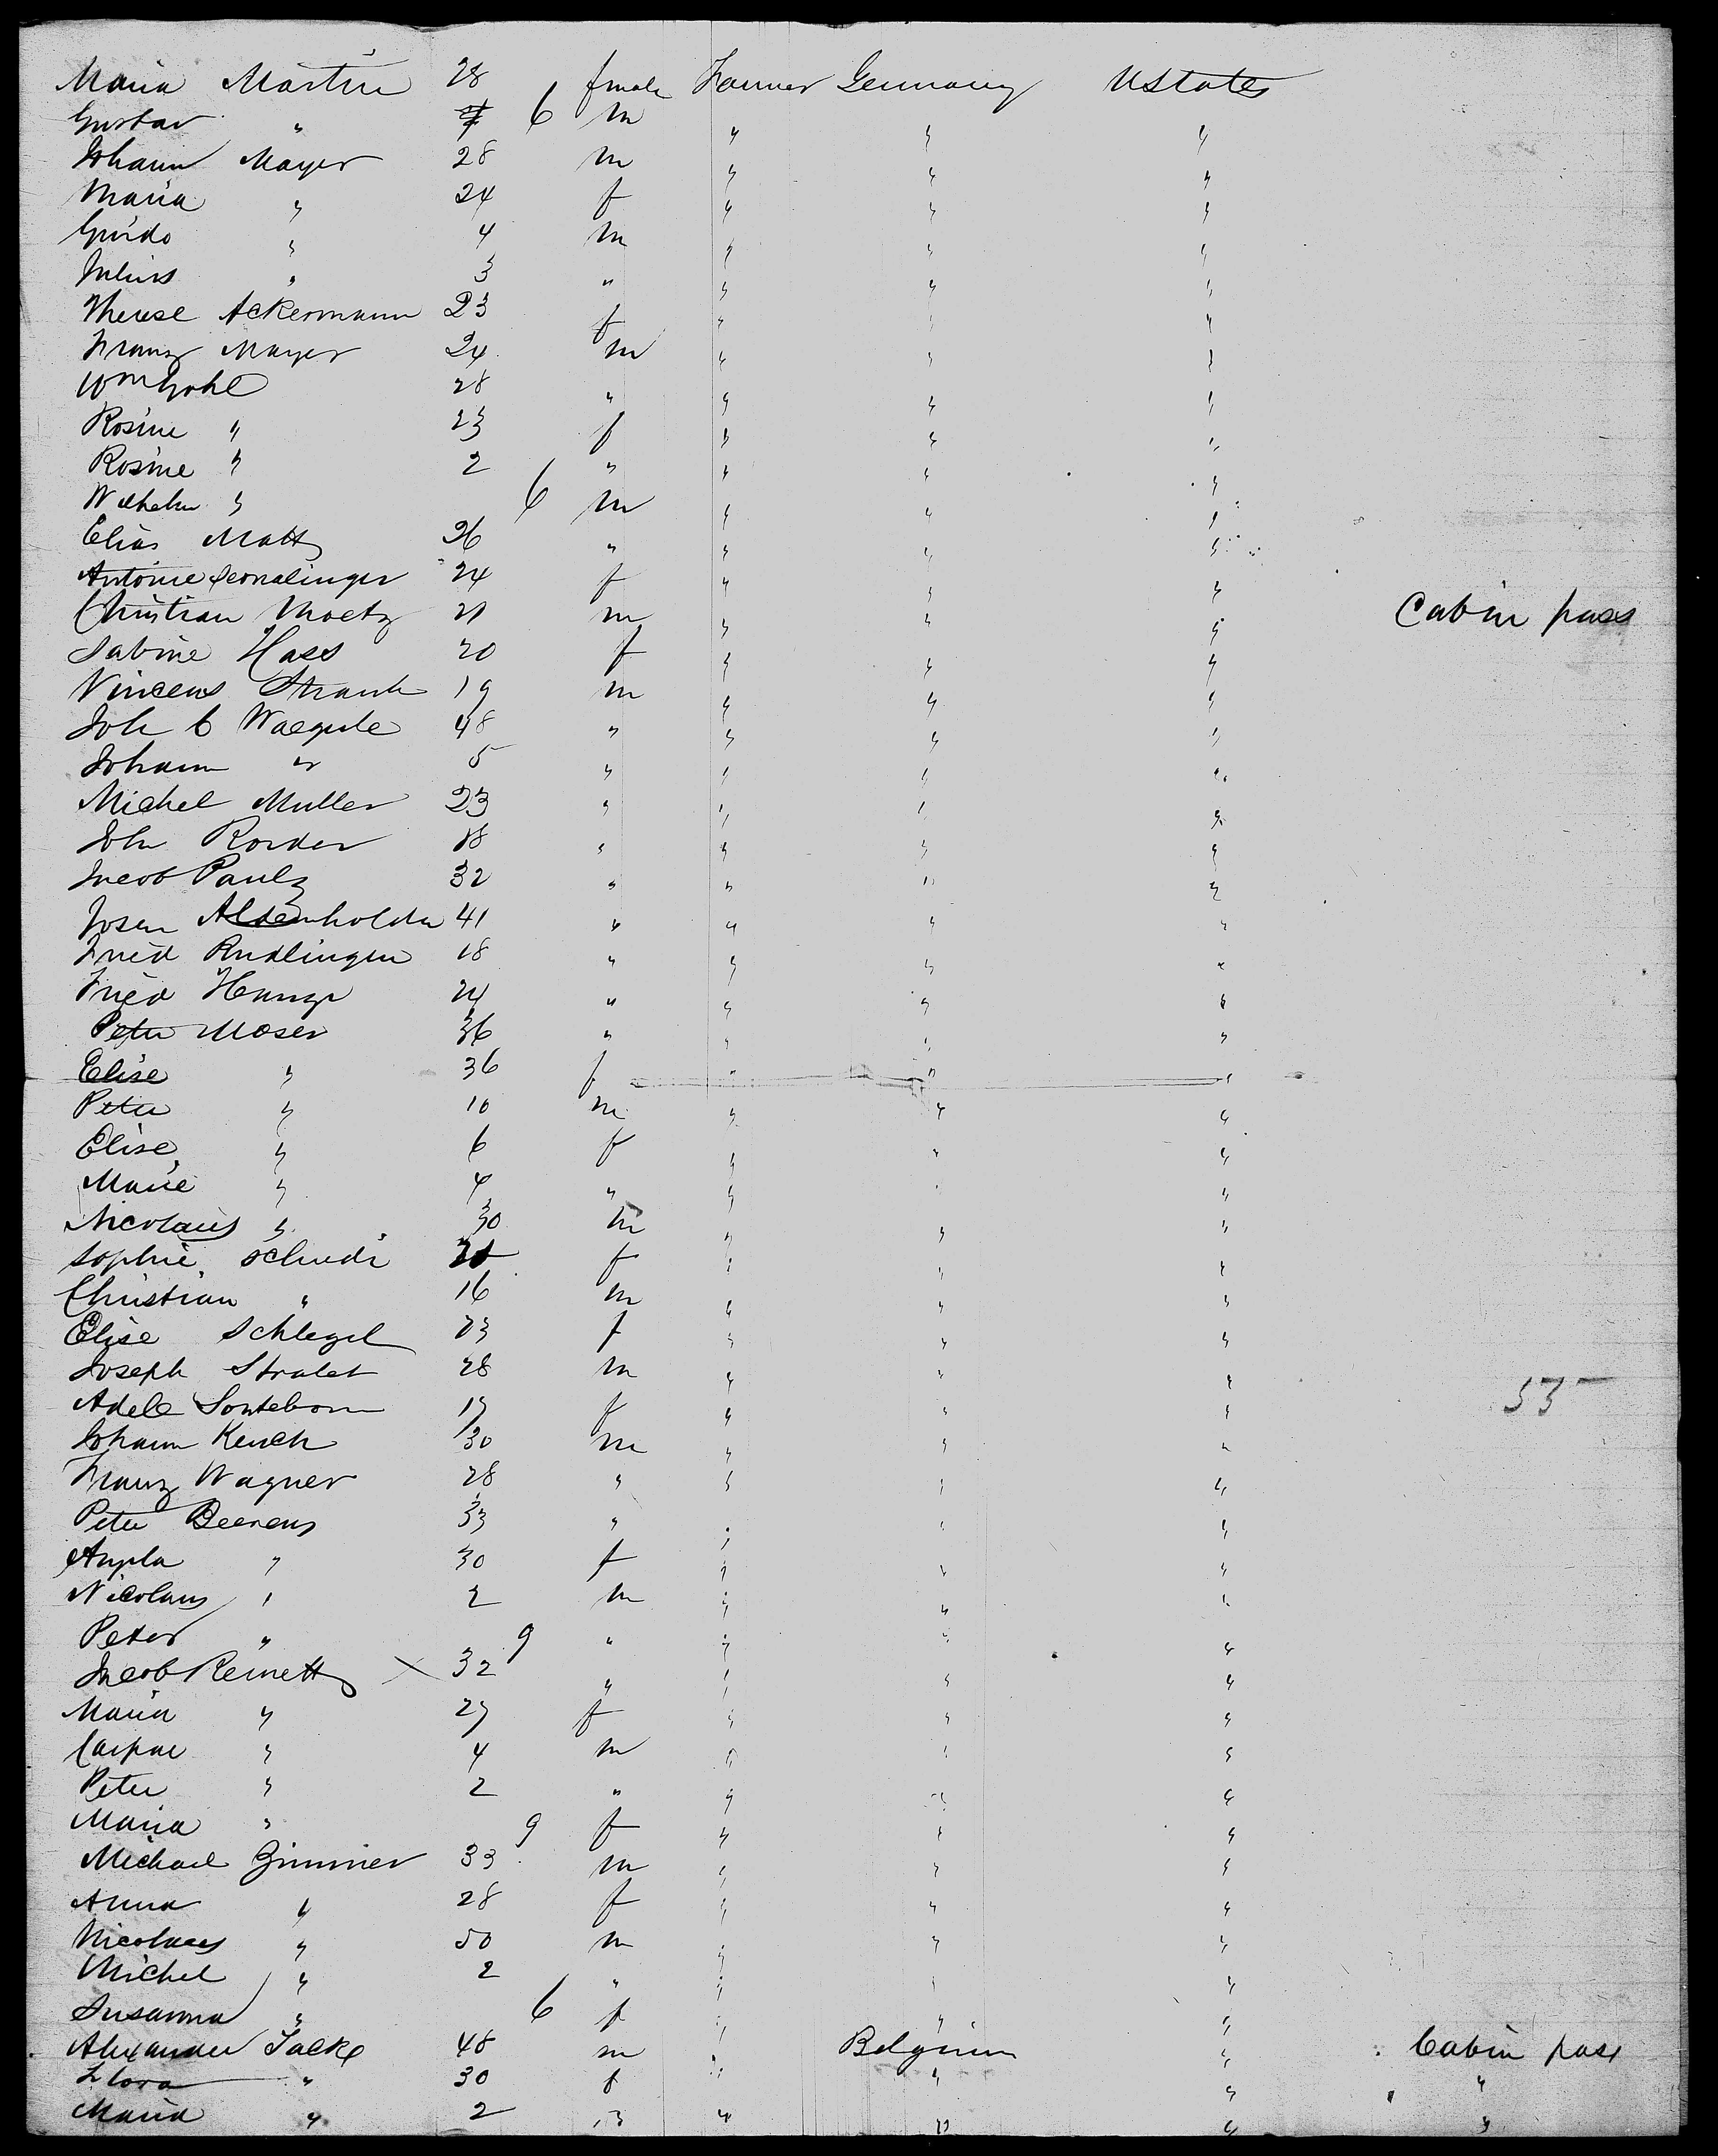 Maria Martin 28 fmale Farmer Germany UStates
Gustav " 6 m " " "
Johann Mayer 28 m " " "
Maria " 24 f " " "
Guido " 4 m " " "
Julius " 3 " " " "
Therese Ackermann 23 f " " "
Franz Mayer 24 m " " "
Wm Gohl 28 " " " "
Rosine " 23 f " " "
Rosine " 2 " " " "
Wilhelm " 6 m " " "
Elias Matt 26 " " " "
Antonie 24 f " " "
Christian 21 m " " " Cabin pass
Sabine Hass 20 f " " "
Vincens Straub 19 m " " "
Joh C Waegele 48 " " " "
Johann " 5 " " " "
Michel Muller 23 " " " "
John Rorder 18 " " " "
Jacob Paulz 32 " " " "
Aldenholder 41 " " " "
Fried Rudlinger 18 " " " "
Fried 24 " " " "
Peter Moser 36 " " " "
Elise " 36 f " " "
Peter " 10 m " " "
Elise " 6 f " " "
Marie " 4 " " " "
Nicolaus " 30 m " " "
Sophie Schudi f " " "
Christian " 16 m " " "
Elise Schlegel 23 f " " "
Joseph Stralet 28 m " " "
53
Adele 19 f " " "
Johann Kench 30 m " " "
Franz Wagner 28 " " " "
Peter Beerens 33 " " " "
Angela " 30 f " " "
Nicolaus " 2 m " " "
Peter " 9 " " " "
Jacob Reinett × 32 " " " "
Maria " 27 f " " "
Caspar " 4 m " " "
Peter " 2 " " " "
Maria " 9 f " " "
Michael Zimmer 33 m " " "
Anna " 28 f " " "
Nicolaus " 50 m " " "
Michel " 2 " " " "
Susanna " 6 f " " "
Alexander Jacke 48 m " Belgium " Cabin pass
Flora " 30 f " " " "
Maria " 2 " " " " "